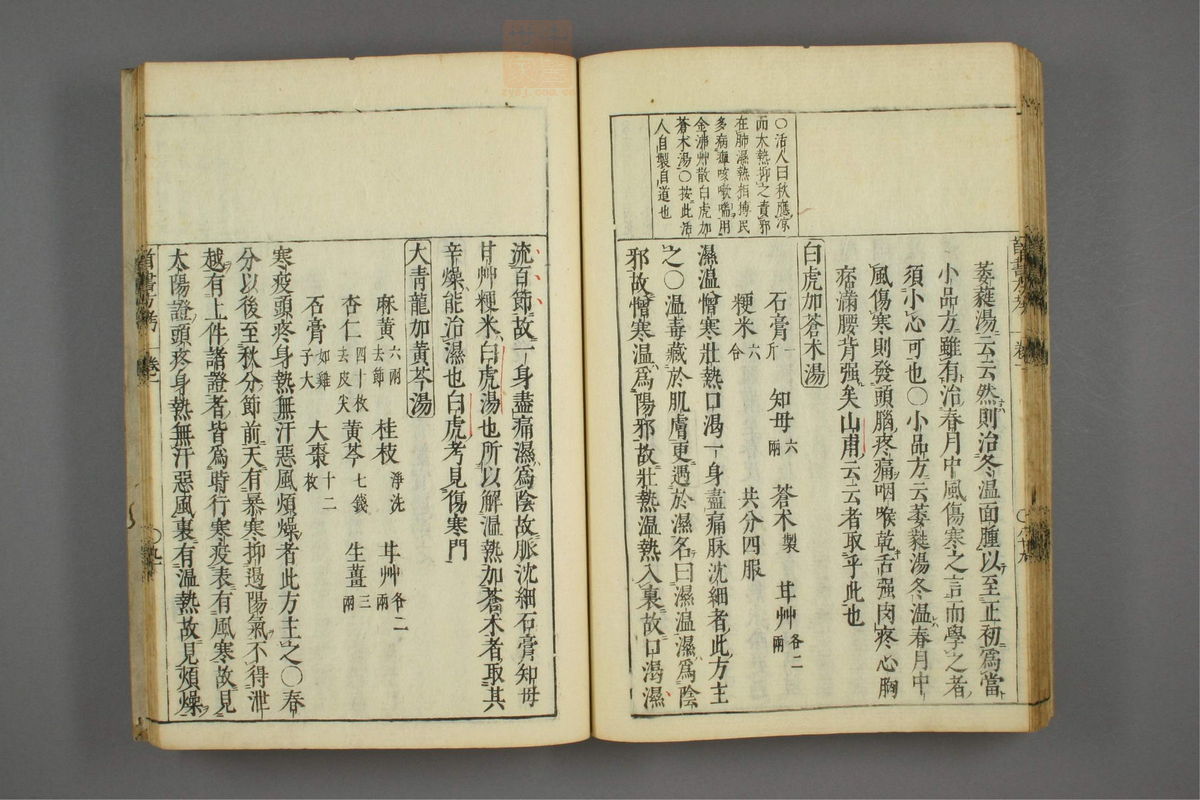 ○活人曰秋應凉
而大熱抑之責邪
在肺濕熱相搏民
多病癉咳嗽喘用
金沸艸散白虎加
蒼朮湯○按此活
人自製自道也
萎蕤湯云云然則治冬溫面腫以至正初爲當
小品方雖有治春月中風傷寒之言而學之者
須小心可也○小品方云萎蕤湯冬溫春月中
風傷寒則發頭腦疼痛咽喉乾舌强肉疼心胸
痞滿腰背强矣山甫云云者取乎此也
白虎加蒼朮湯
石膏一斤 知母六兩 蒼朮製 甘艸各二兩
粳米六合 共分四服
濕溫憎寒壯熱口渴一身盡痛脉沈細者此方主
之○溫毒藏於肌膚更遇於濕名曰濕溫濕爲陰
邪故憎寒溫爲陽邪故壯熱溫熱入裏故口渴濕
流百節故一身盡痛濕爲陰故脈沈細石膏知母
甘艸粳米白虎湯也所以解溫熱加蒼朮者取其
辛燥能治濕也白虎考見傷寒門
大青龍加黃芩湯
麻黃六兩去節 桂枝淨洗 甘艸各二兩
杏仁四十枚去皮尖 黃芩七錢 生薑三兩
石膏如雞子大 大棗十二枚
寒疫頭疼身熱無汗惡風煩燥者此方主之○春
分以後至秋分節前天有暴寒抑遏陽氣不得泄
越有上件諸證者皆爲時行寒疫表有風寒故見
太陽證頭疼身熱無汗惡風裏有溫熱故見煩燥